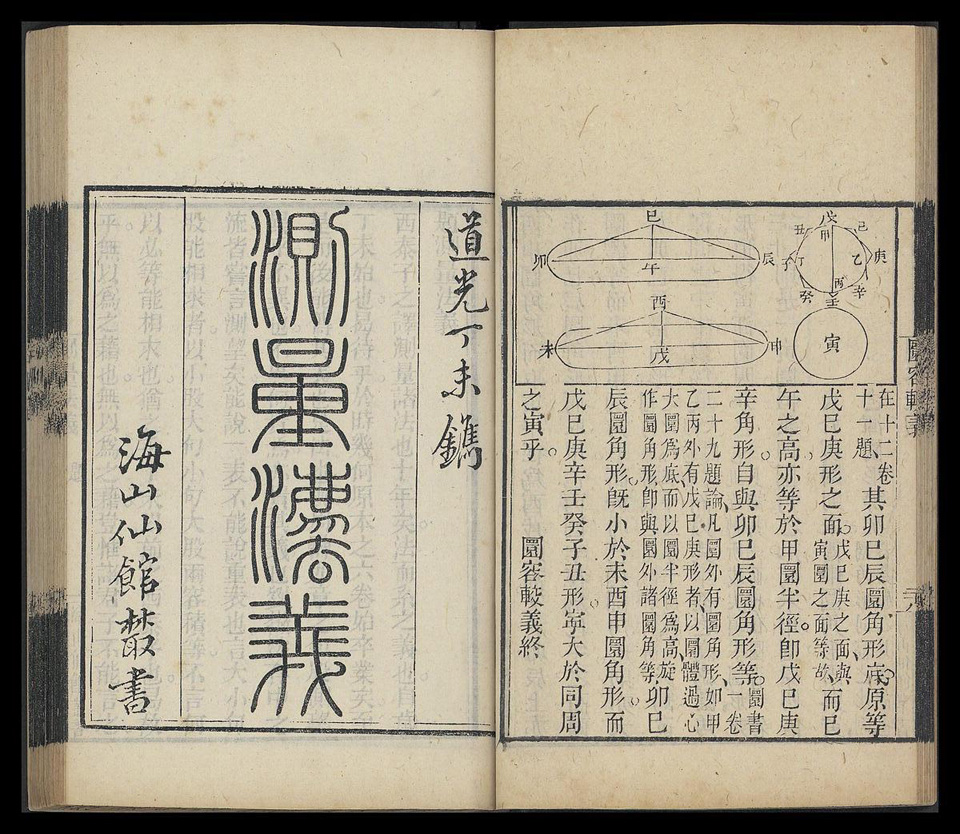 圜容較義
戊
己
丑
甲
庚
乙
丁
子
丙
辛
壬
癸
寅
巳
辰
午
卯
酉
申
戌
未
在十二卷
十一題
其卯巳辰圜角形底原等
戊巳庚形之面
戊巳庚之面與
寅圜之面等故
而巳
午之高亦等於甲圜半徑卽戊巳庚
辛角形自與卯巳辰圜角形等。
圜書
一卷
二十九題論凡圜外有圜角形如甲
乙丙外有戊巳庚形者以圜體過心
大圜為底而以圜半徑爲高旋
作圜角形卽與圜外諸圜角等
卯巳
辰圜角形旣小於未酉申圜角形而
戊巳庚辛壬癸子丑形寧大於同周
之寅乎。 圜容較義終
道光丁未鐫
測量灋義
海山仙館叢書